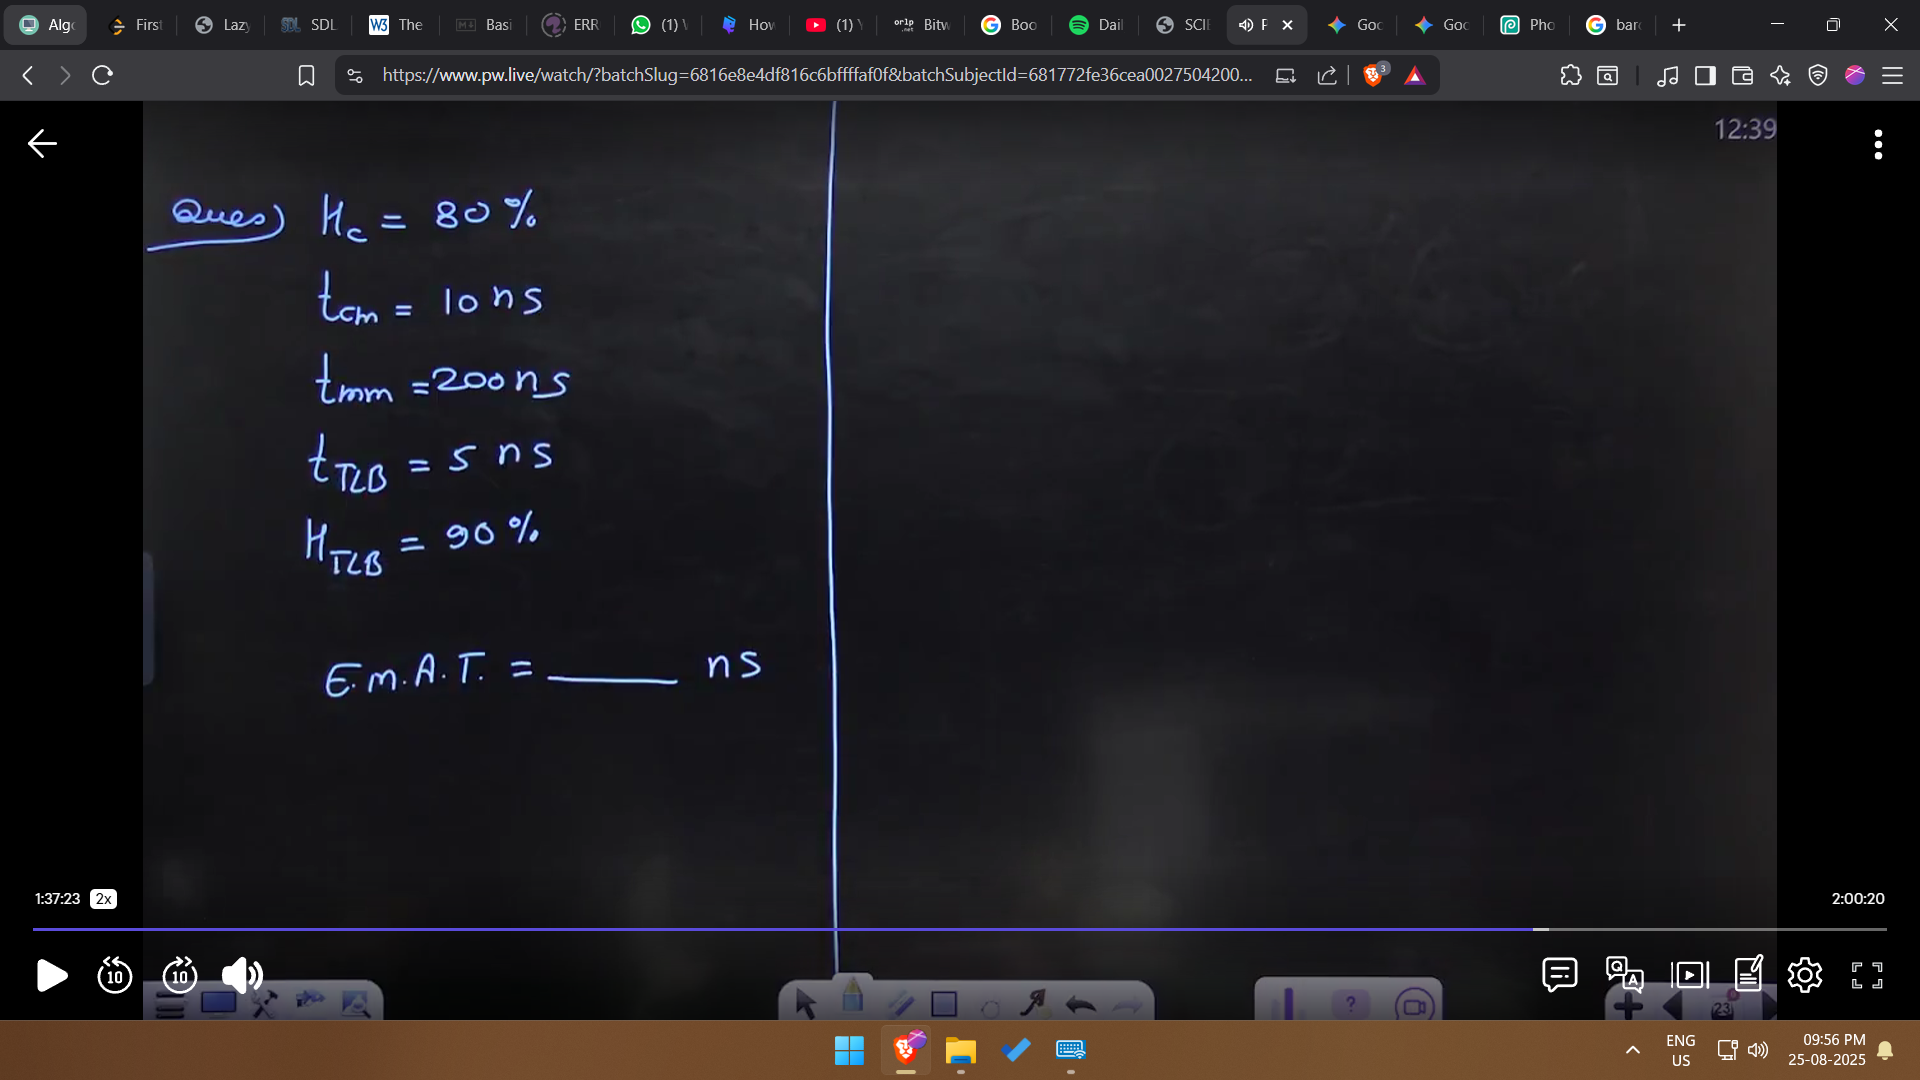 Algo
First
Lazy
SDL
W3 The
Basi
ERR
(1)
How
(1)
orlp .net Bitw
Boo
Dail
SCIE
Goo
Goo
Pho
bar
https://www.pw.live/watch/?batchSlug=6816e8e4df816c6bffffaf0f&batchSubjectId=681772fe36cea0027504200...
3
12:39
Ques) Hc = 80 %
tcm = 10 ns
tmm = 200 ns
tTLB = 5 ns
HTLB = 90 %
E.M.A.T. = ______ ns
1:37:23 2x
2:00:20
10 10
Q A
?
23
ENG
US
09:56 PM
25-08-2025